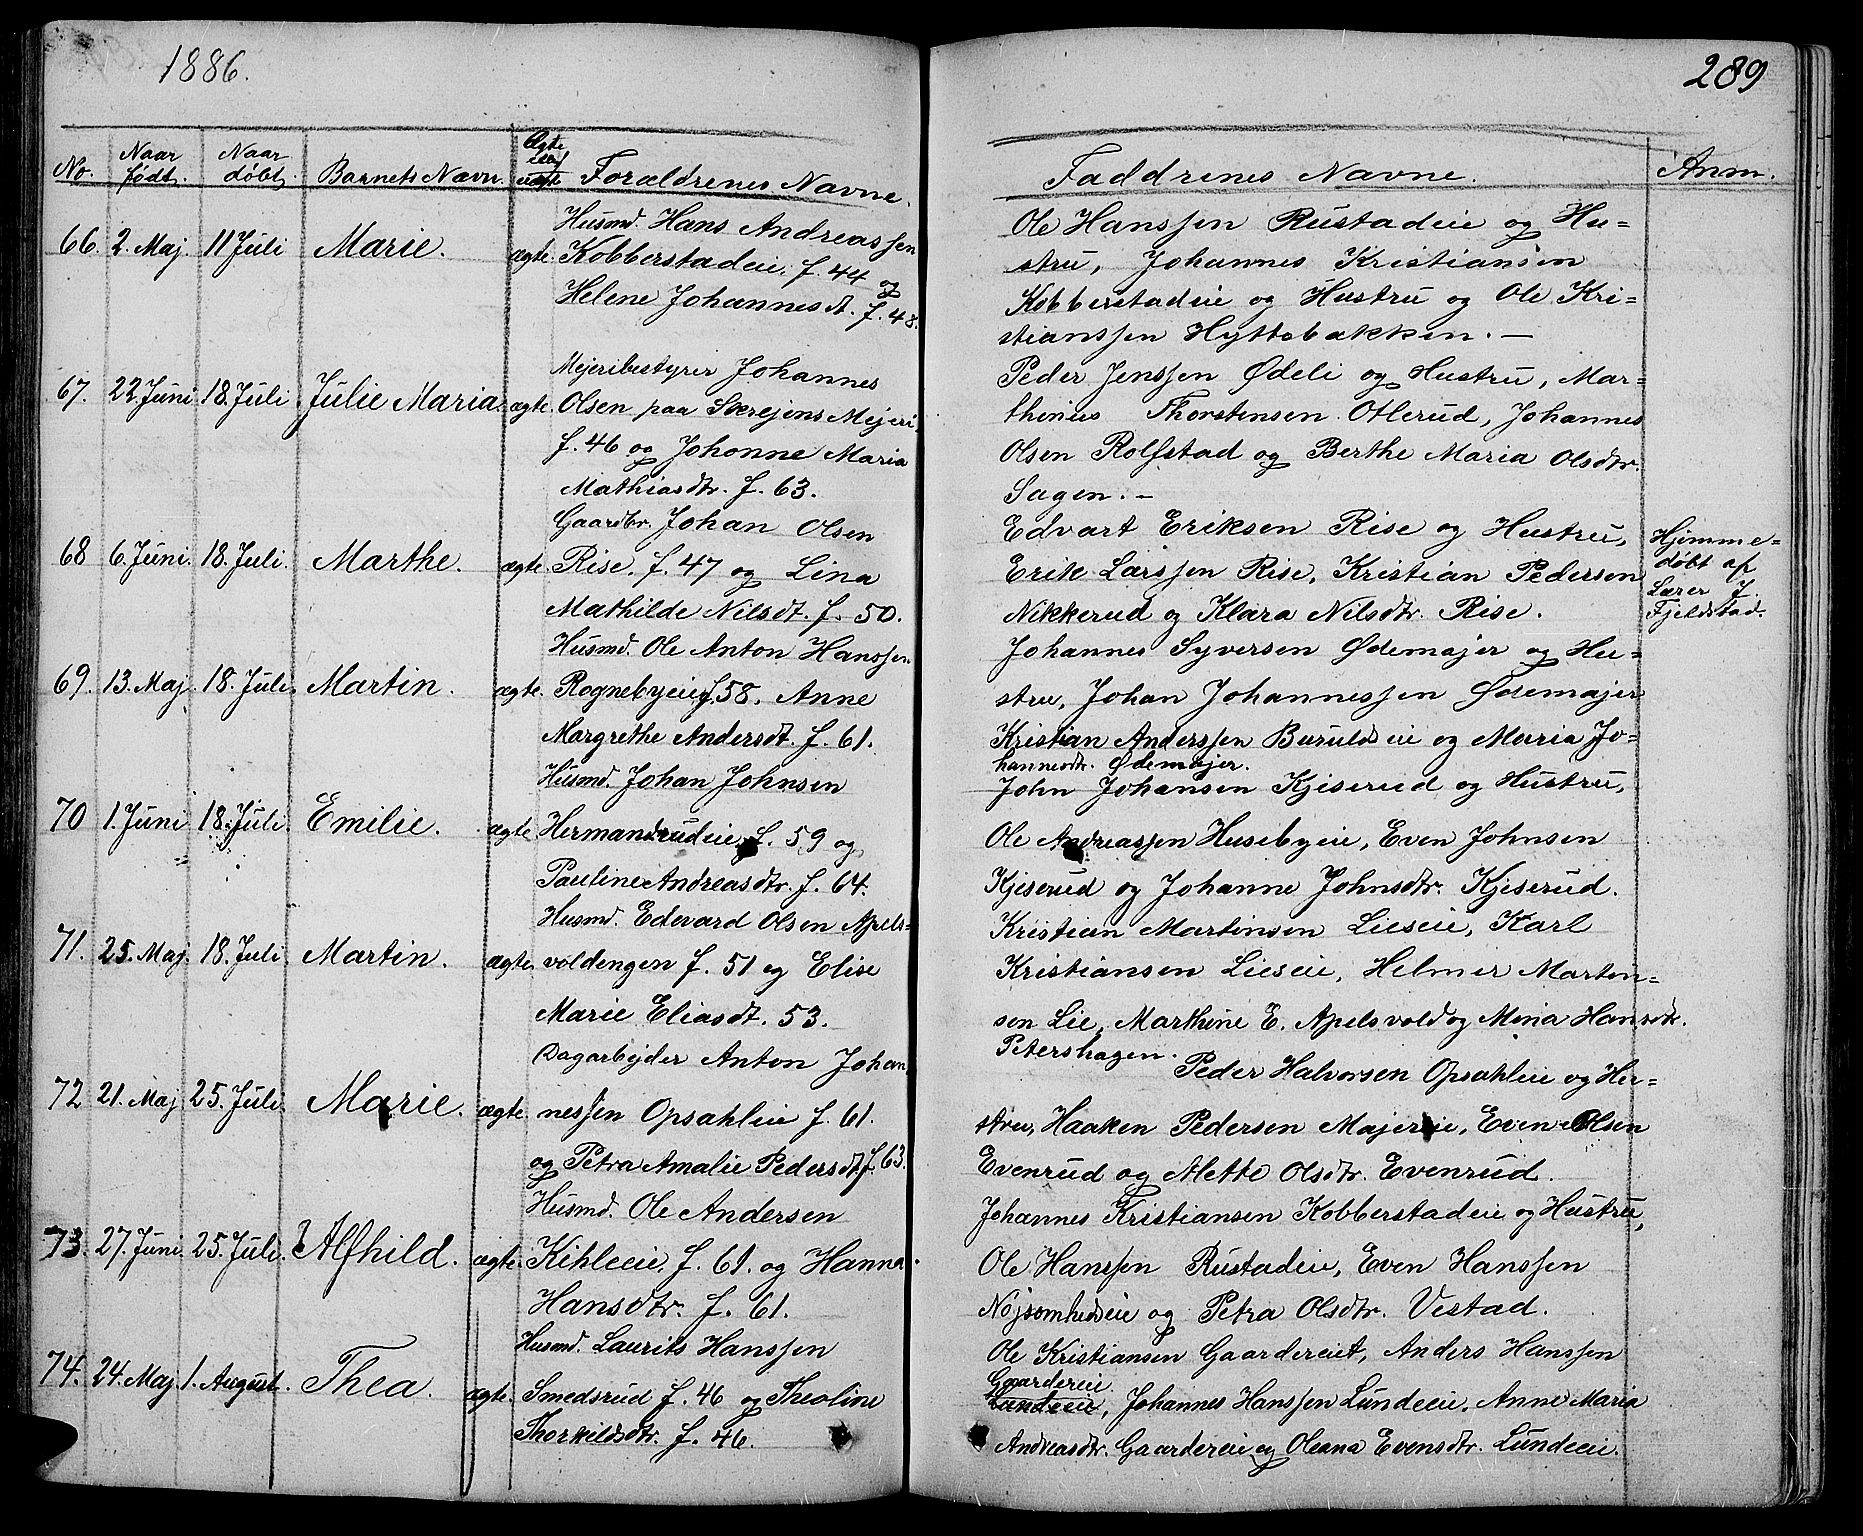 1886.
289
No. Naar født. Naar døbt. Barnets Navn. Ægte eller uægte Forældrenes Navne. Faddrenes Navne. Anm.
66. 2. Maj. 11 Juli Marie. ægte.
Husmd. Hans Andreassen
Kobberstadeie. f. 44 og
Helene Johannesdt. f. 48.
Ole Hanssen Rustadeie og Hu=
stru, Johannes Kristiansen
Kobberstadeie og Hustru og Ole Kri=
stianssen Hyttebakken. —
67. 22. Juni 18. Juli Julie Maria. ægte.
Mejeribestyrer Johannes
Olsen paa Skrejens Mejeri
f. 46 og Johonne Maria
Mathiasdtr. f. 63.
Peder Jenssen Ødeli og Hustru, Mar=
thinius Thorstensen Otlerud, Johannes
Olsen Rolfstad og Berthe Maria Olsdtr.
Sagen. —
68 6. Juni. 18. Juli. Marthe. ægte.
Gaardbr. Johan Olsen
Rise. f. 47 og Lina
Mathilde Nilsdt. f. 50.
Edvart Eriksen Rise og Hustru,
Erik Larssen Rise, Kristian Pedersen
Nikkerud og Klara Nilsdtr. Rise.
Hjemme=
døbt af
Lærer J.
Fjeldstad.
69. 13. Maj. 18. Juli. Martin. ægte.
Husmd. Ole Anton Hanssen
Rognebyeie, f. 58. Anne
Margrethe Andersdt. f. 61.
Johannes Syversen Ødemajer og Hu=
stru, Johan Johannessen Ødemajer
Kristian Anderssen Buruldseie og Maria Jo=
hannesdtr. Ødemajer.
70 1. Juni 18. Juli. Emilie. ægte.
Husmd. Johan Johnsen
Hermandrudeie, f. 59 og
Pauline Andreasdtr. f. 64.
John Johansen Kjiserud og Hustru,
Ole Andreassen Husebyeie, Even Johnsen
Kjiserud og Johanne Johnsdtr. Kjiserud.
71. 25. Maj. 18. Juli Martin. ægte.
Husmd. Edevard Olsen Apels=
voldengen f. 51 og Elise
Marie Eliasdt. 53.
Kristian Martinsen Lieseie, Karl
Kristiansen Lieseie, Helmer Martin=
sen Lie, Marthine E. Apelsvold og Mina Hansdtr.
Petershagen.
72 21. Maj 25. Juli. Marie. ægte.
Dagarbejder Anton Johan
nessen Opsahleie f. 61.
og Petra Amalie Pedersdt. f. 63.
Peder Halvorsen Opsahleie og Hu=
stru, Haaken Pedersen Majereie, Even Olsen
Evenrud og Mette Olsdtr. Evenrud.
73. 27. Juni. 25. Juli. Alfhild. ægte.
Husmd. Ole Andersen
Kihleeie. f. 61. og Hanna
Hansdtr. f. 61.
Johannes Kristiansen Kobberstadeie og Hustru,
Ole Hanssen Rustadeie, Even Hanssen
Nøjsomhedseie og Petra Olsdtr. Vestad.
74. 24. Maj 1. August. Thea. ægte.
Husmd. Laurits Hanssen
Smedsrud f. 46 og Theoline
Thorkildsdtr. f. 46.
Ole Kristiansen Gaardereiet, Anders Hanssen
Gaardereie
Lundeeie, Johannes Hanssen Lundeeie. Anne Maria
Andreasdtr. Gaardereie og Oleana Evensdtr. Lundeeie.